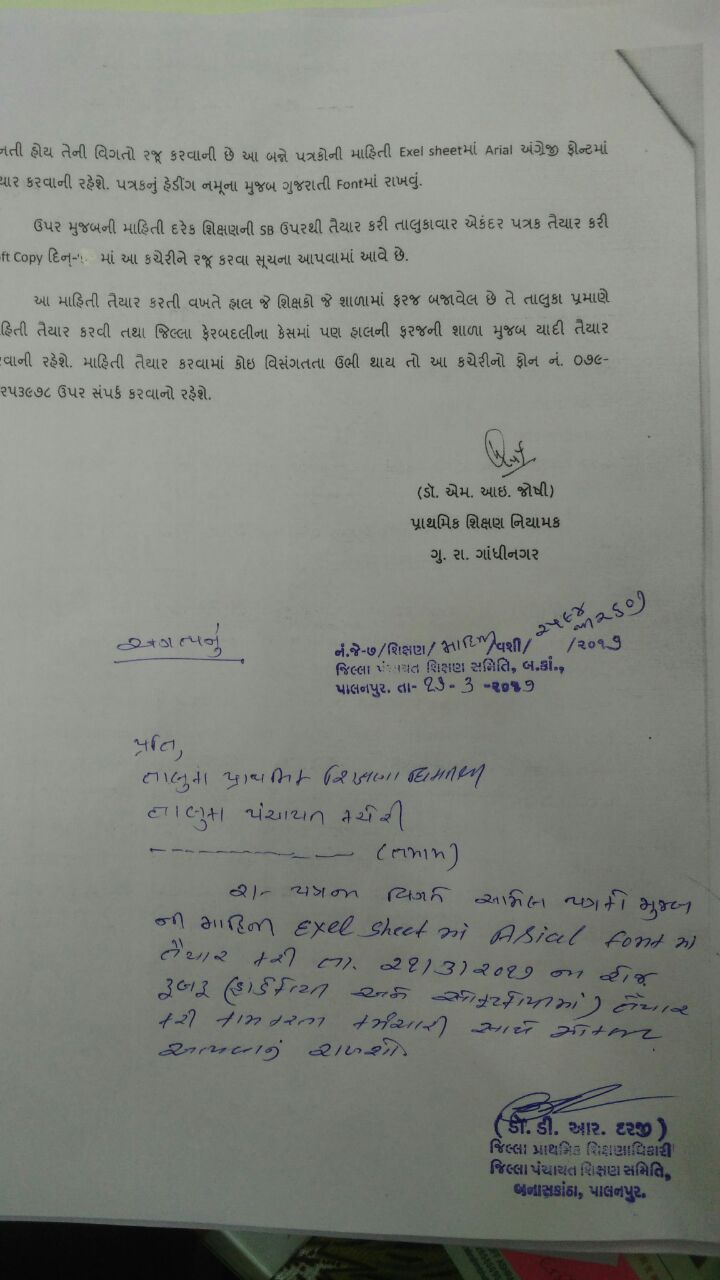 નતી હોય તેની વિગતો રજૂ કરવાની છે આ બન્ને પત્રકોની માહિતી Exel sheetમાં Arial અંગ્રેજી ફોન્ટમાં
યાર કરવાની રહેશે. પત્રકનું હેડીંગ નમૂના મુજબ ગુજરાતી Fontમાં રાખવું.
ઉપર મુજબની માહિતી દરેક શિક્ષણની SB ઉપરથી તૈયાર કરી તાલુકાવાર એકંદર પત્રક તૈયાર કરી
ft Copy દિન- માં આ કચેરીને રજૂ કરવા સૂચના આપવામાં આવે છે.
આ માહિતી તૈયાર કરતી વખતે હાલ જે શિક્ષકો જે શાળામાં ફરજ બજાવેલ છે તે તાલુકા પ્રમાણે
હિતી તૈયાર કરવી તથા જિલ્લા ફેરબદલીના કેસમાં પણ હાલની ફરજની શાળા મુજબ યાદી તૈયાર
વાની રહેશે. માહિતી તૈયાર કરવામાં કોઇ વિસંગતતા ઉભી થાય તો આ કચેરીનો ફોન નં. ૦૭૯-
૨૫૩૯૭૮ ઉપર સંપર્ક કરવાનો રહેશે.
(ડૉ. એમ. આઇ. જોષી)
પ્રાથમિક શિક્ષણ નિયામક
ગુ. રા. ગાંધીનગર
અગત્યનું
નં.જે-૭/શિક્ષણ/માહિતી/વશી/ /૨૦૧૭
જિલ્લા પંચાયત શિક્ષણ સમિતિ, બ.કાં.,
પાલનપુર. તા- ૨૩-૩-૨૦૧૭
પ્રતિ,
તાલુકા પ્રાથમિક શિક્ષણાધિકારી
તાલુકા પંચાયત કચેરી
(તમામ)
પત્રના વિગતે સામેલ પત્રકો મુજબ
ની માહિતી Exel sheet માં Arial font માં
તૈયાર કરી તા. ૨૧/૩/૨૦૧૭ ના રોજ
રૂબરૂ (હાર્ડકોપી અને સોફ્ટકોપીમાં) તૈયાર
કરી કામ કરતા કર્મચારી સાથે મોકલી
આપવાનું રાખશો.
(ડૉ. ડી. આર. દરજી)
જિલ્લા પ્રાથમિક શિક્ષણાધિકારી
જિલ્લા પંચાયત શિક્ષણ સમિતિ,
બનાસકાંઠા, પાલનપુર.